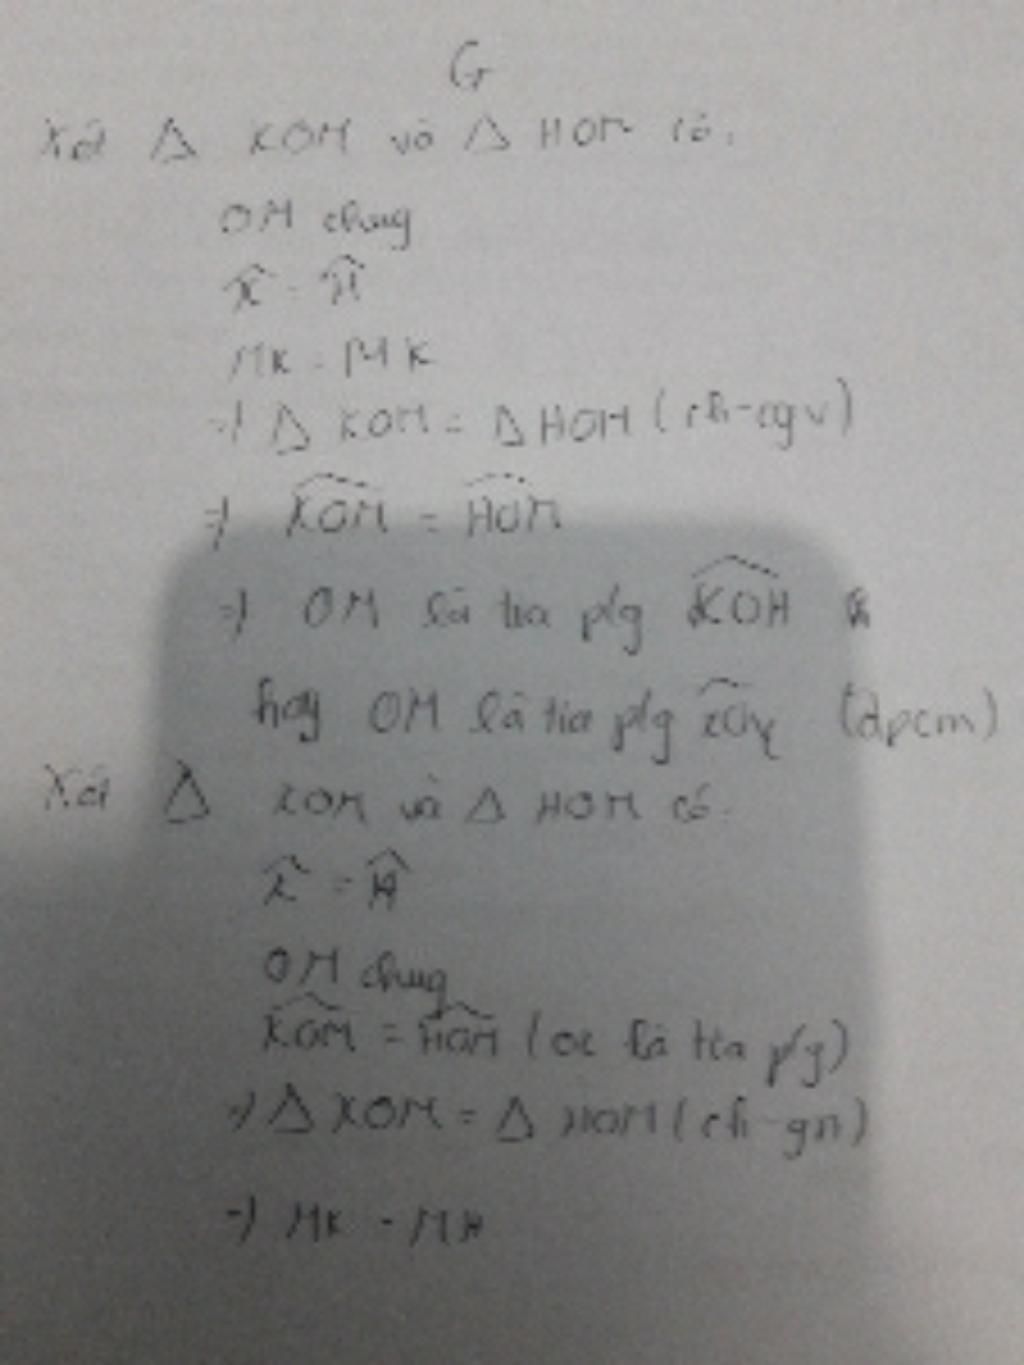 G
Xét Δ KOM và Δ HOM có:
OM chug
K̂ = Ĥ
MK = MK
=) Δ KOM = Δ HOM (ch-cgv)
=) K̂OM = ĤOM
=) OM là tia p/g K̂OH
hay OM là tia p/g x̂Oy (đpcm)
Xét Δ KOM và Δ HOM có:
K̂ = Ĥ
OM chug
K̂OM = ĤOM (oc là tia p/g)
=) Δ KOM = Δ HOM (ch-gn)
=) MK = MH